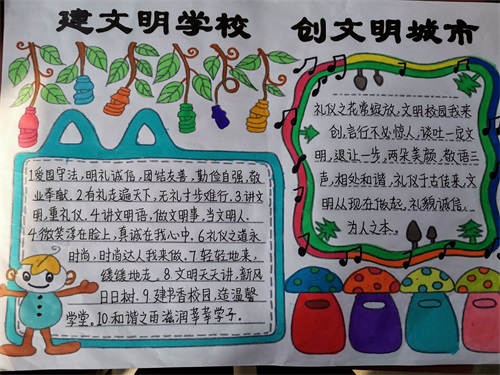 建文明学校
创文明城市
1爱国守法,明礼诚信,团结友善,勤俭自强,敬
业奉献.2有礼走遍天下,无礼寸步难行.3讲文
明,重礼仪.4讲文明语,做文明事,当文明人.
4微笑浮在脸上,真诚在我心中.6礼仪之道永
时尚,时尚达人我来做.7轻轻地来,
缓缓地走.8文明天天讲,新风
日日树.9建书香校园,造温馨
学堂.10.和谐之雨滋润莘莘学子.
礼仪之花常绽放,文明校园我来
创,言行不必惊人,谈吐一定文
明,退让一步,两朵美颜,敬语三
声,相处和谐,礼仪于古传来,文
明从现在做起,礼貌诚信,
为人之本.